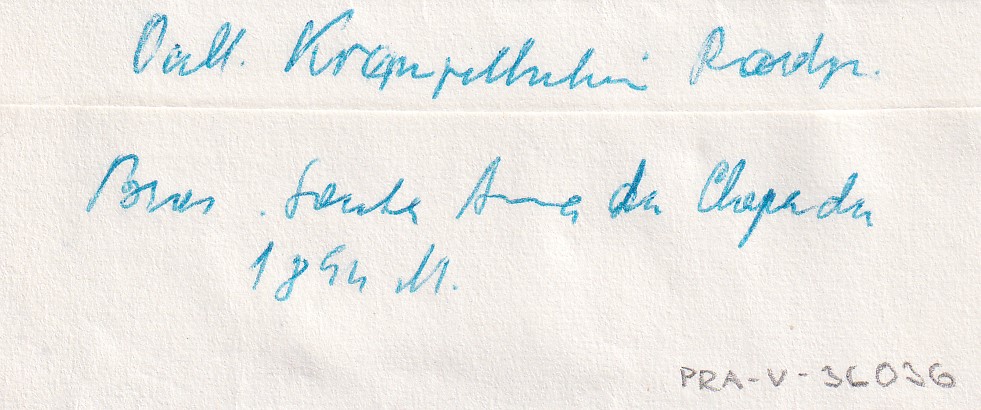 Call. Krempelhuberi Raddi.
Bras. Santa Anna da Chapada
1894 M.
PRA-V-36036